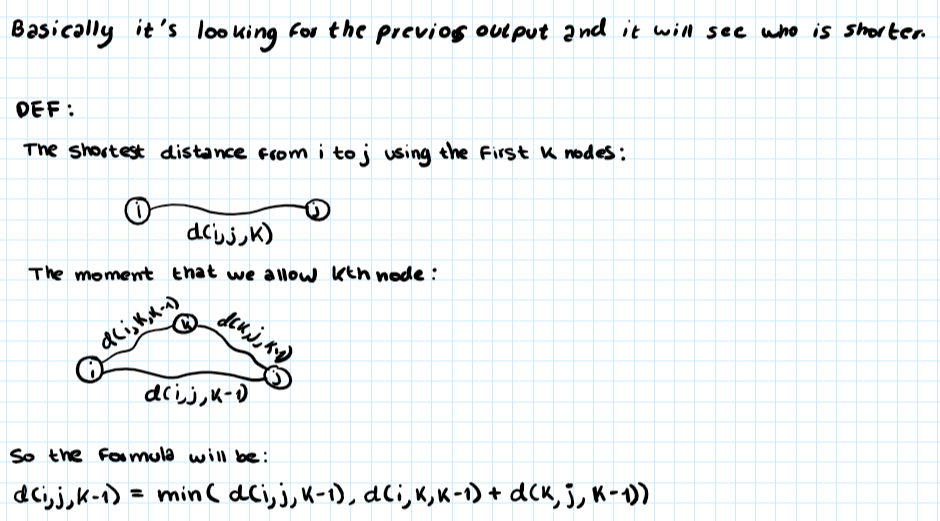 Basically it's looking for the previos output and it will see who is shorter.
DEF:
The shortest distance from i to j using the first K nodes:
i j
d(i,j,K)
The moment that we allow kth node:
d(i,K,K-1) K d(K,j,K-1)
i j
d(i,j,K-1)
So the formula will be:
d(i,j,K-1) = min( d(i,j,K-1), d(i,K,K-1) + d(K,j,K-1))